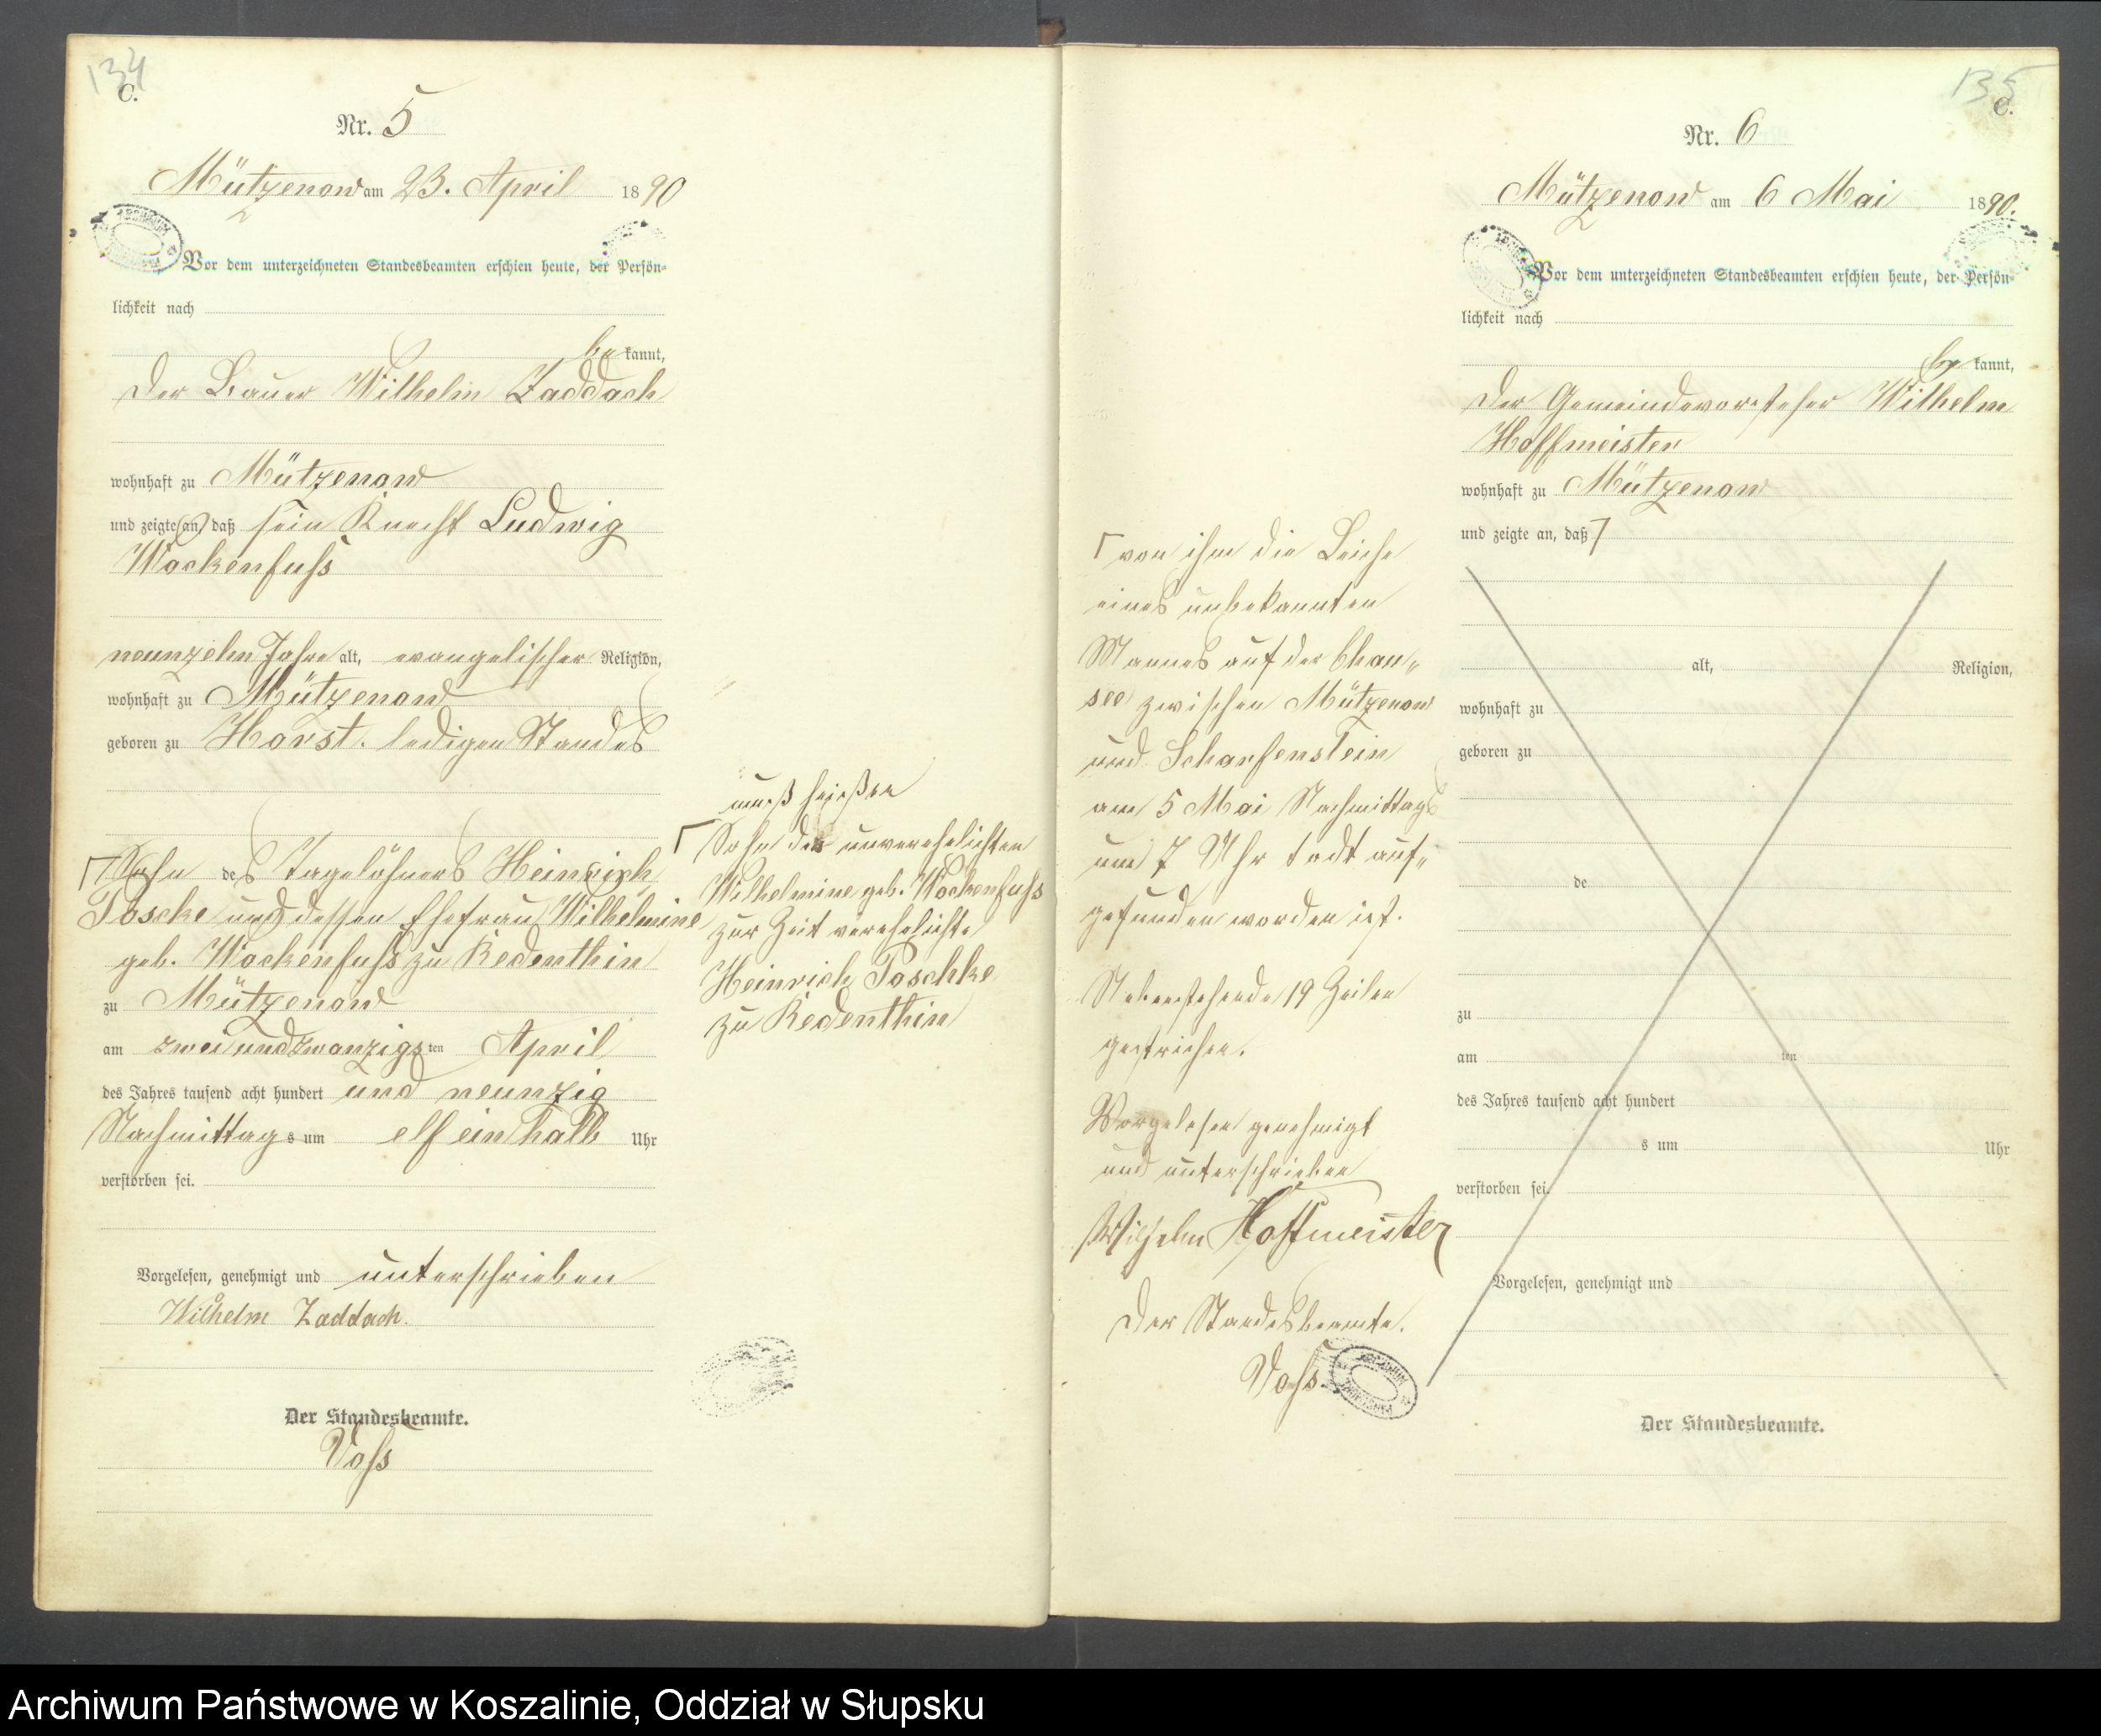 134
C.
Nr. 5
Mützenow am 23. April 1890
Vor dem unterzeichneten Standesbeamten erschien heute, der Persön-
lichkeit nach
bekannt,
der Bauer Wilhelm Zaddach
wohnhaft zu Mützenow
und zeigte an, daß sein Knecht Ludwig
Wockenfuss
neunzehn Jahre alt, evangelischer Religion,
wohnhaft zu Mützenow
geboren zu Horst. ledigen Standes
Sohn des Tagelöhners Heinrich
Poscke und dessen Ehefrau Wilhelmine
geb. Wockenfuss zu Redenthin
zu Mützenow
am zwei und zwanzigsten April
des Jahres tausend acht hundert und neunzig
Nachmittags um elf ein halb Uhr
verstorben sei.
Vorgelesen, genehmigt und unterschrieben
Wilhelm Zaddach.
Der Standesbeamte.
Voss
muß heißen
Sohn der unverehelichten
Wilhelmine geb. Wockenfuss
zur Zeit verehelichte
Heinrich Poschke
zu Redenthin
135
C.
Nr. 6
Mützenow am 6 Mai 1890.
Vor dem unterzeichneten Standesbeamten erschien heute, der Persön-
lichkeit nach
bekannt,
der Gemeindevorsteher Wilhelm
Hoffmeister
wohnhaft zu Mützenow
und zeigte an, daß
von ihm die Leiche
eines unbekannten
Mannes auf der Chau-
see zwischen Mützenow
und Scharfenstein
am 5 Mai Nachmittags
um 7 Uhr todt auf-
gefunden worden ist.
Nebenstehende 19 Zeilen
gestrichen.
Vorgelesen genehmigt
und unterschrieben
Wilhelm Hoffmeister
Der Standesbeamte.
Voss.
alt, Religion,
wohnhaft zu
geboren zu
de
zu
am ten
des Jahres tausend acht hundert
s um Uhr
verstorben sei.
Vorgelesen, genehmigt und
Der Standesbeamte.
Archiwum Państwowe w Koszalinie, Oddział w Słupsku